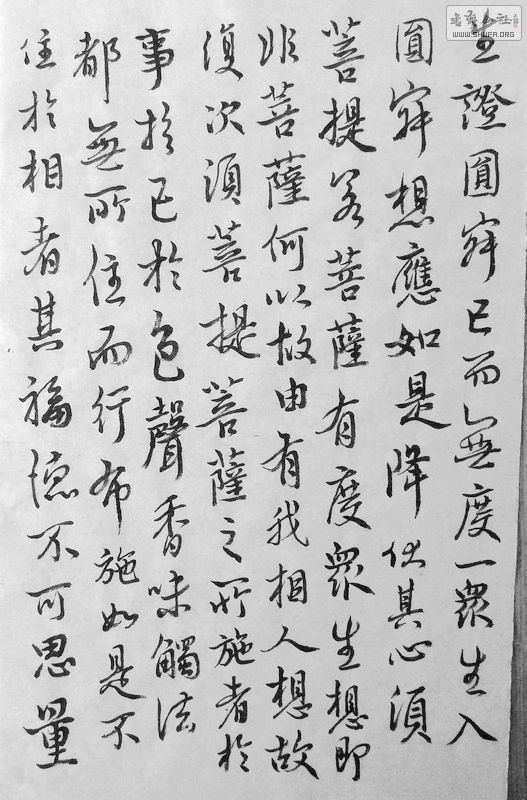 生證圓寂已而無度一衆生入
圓寂想應如是降伏其心須
菩提若菩薩有度衆生想即
非菩薩何以故由有我相人想故
復次須菩提菩薩之所施者於
事於已於色聲香味觸法
都無所住而行布施如是不
住於相者其福德不可思量
書法公社
WWW.SHUFA.ORG